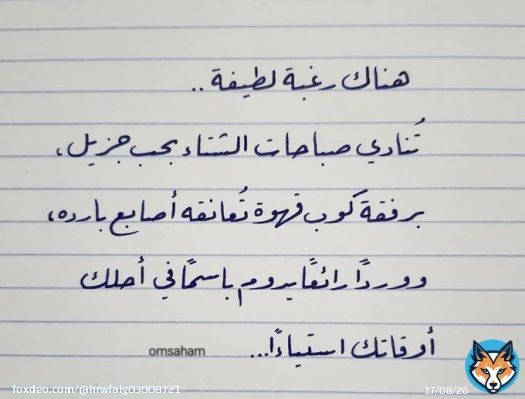 هناك رغبة لطيفة ..
تُنادي صباحات الشتاء بحب جزيل،
برفقة كوب قهوة تُعانقه أصابع بارده،
ووردًا رائعًا يدوم باسمًا في أحلك
أوقاتك استياءًا...
omsaham
foxdeo.com/@hiwfalg03008721
17/08/26